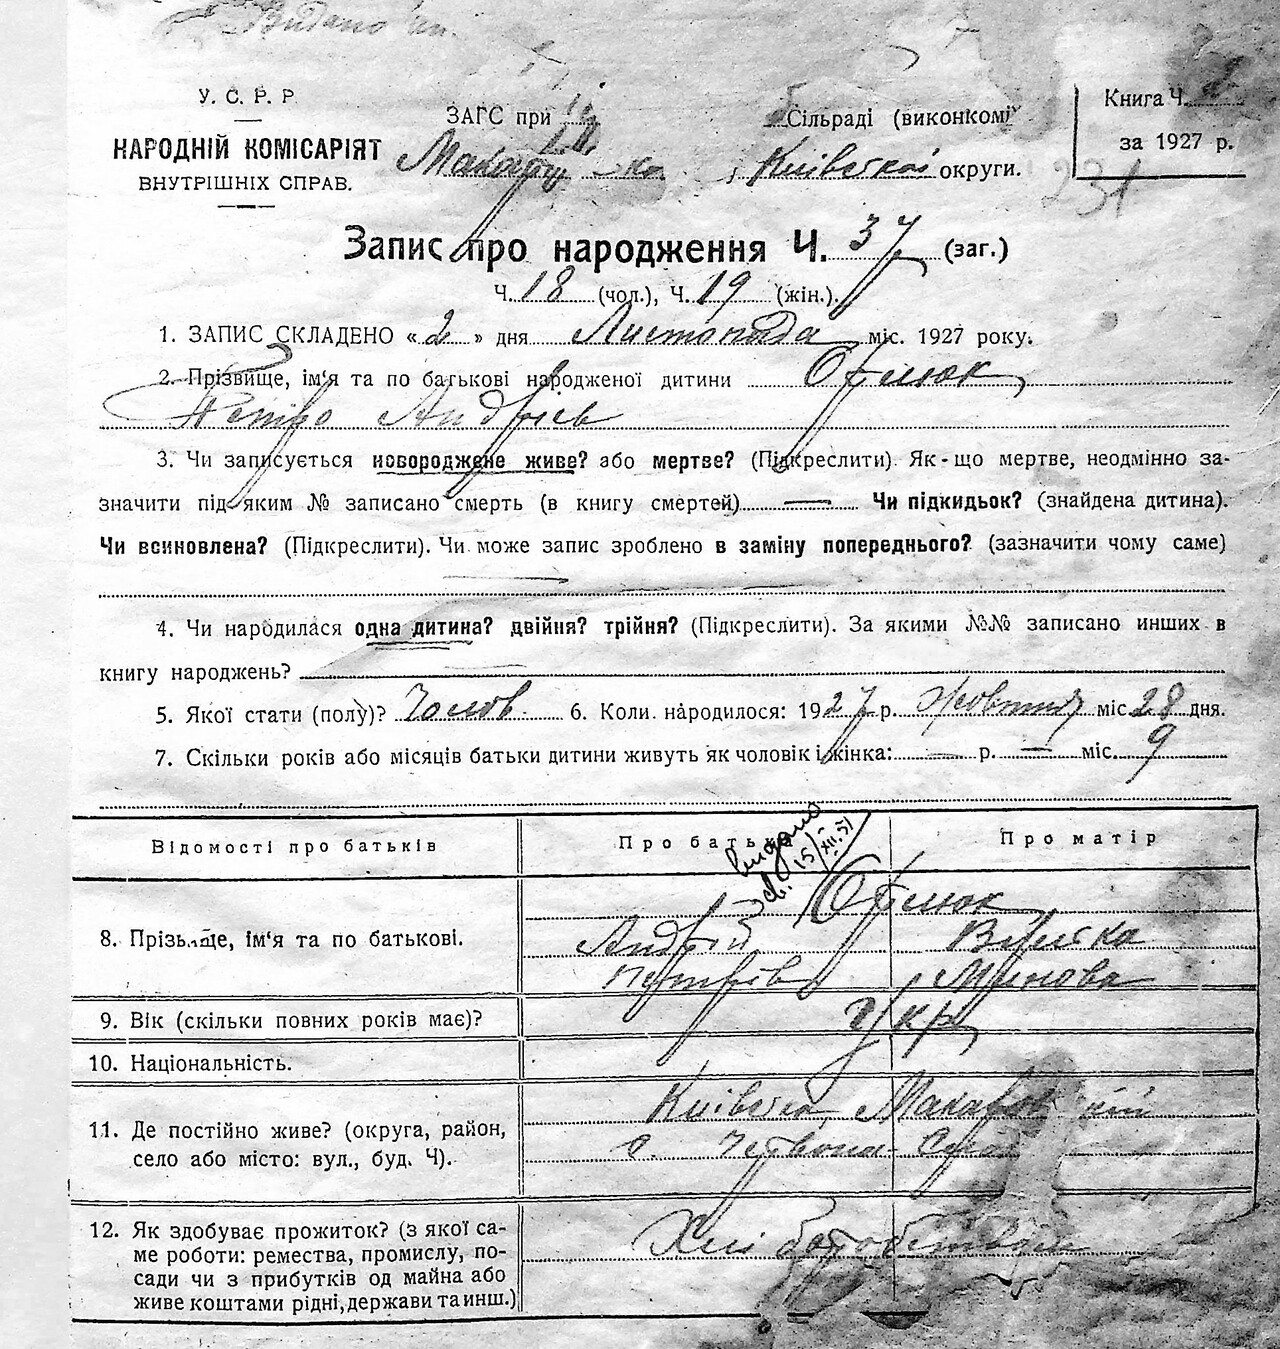 Видано
У. С. Р. Р
НАРОДНІЙ КОМІСАРІЯТ
ВНУТРІШНІХ СПРАВ.
ЗАГС при Сільраді (виконкомі)
Київської округи.
Книга Ч.
за 1927 р.
231
Запис про народження Ч. 37 (заг.)
Ч. 18 (чол.), Ч. 19 (жін.).
1. ЗАПИС СКЛАДЕНО « 2 » дня Листопада міс. 1927 року.
2. Прізвище, ім'я та по батькові народженої дитини
Петро Андріев
3. Чи записується новороджене живе? або мертве? (Підкреслити). Як-що мертве, неодмінно за-
значити під яким № записано смерть (в книгу смертей) — Чи підкидьок? (знайдена дитина).
Чи всиновлена? (Підкреслити). Чи може запис зроблено в заміну попереднього? (зазначити чому саме)
4. Чи народилася одна дитина? двійня? трійня? (Підкреслити). За якими №№ записано инших в
книгу народжень?
5. Якої стати (полу)? Чолов. 6. Коли народилося: 1927 р. Жовтня міс. 28 дня.
7. Скільки років або місяців батьки дитини живуть як чоловік і жінка: — р. — міс. 9
Відомості про батьків
Про батька
Про матір
видано
15/XII.51
8. Прізвище, ім'я та по батькові.
Андрій
9. Вік (скільки повних років має)?
Укр
10. Національність.
11. Де постійно живе? (округа, район,
село або місто: вул., буд. Ч).
Київська Макаровський
с. Червона
12. Як здобуває прожиток? (з якої са-
ме роботи: ремества, промислу, по-
сади чи з прибутків од майна або
живе коштами рідні, держави та инш.)